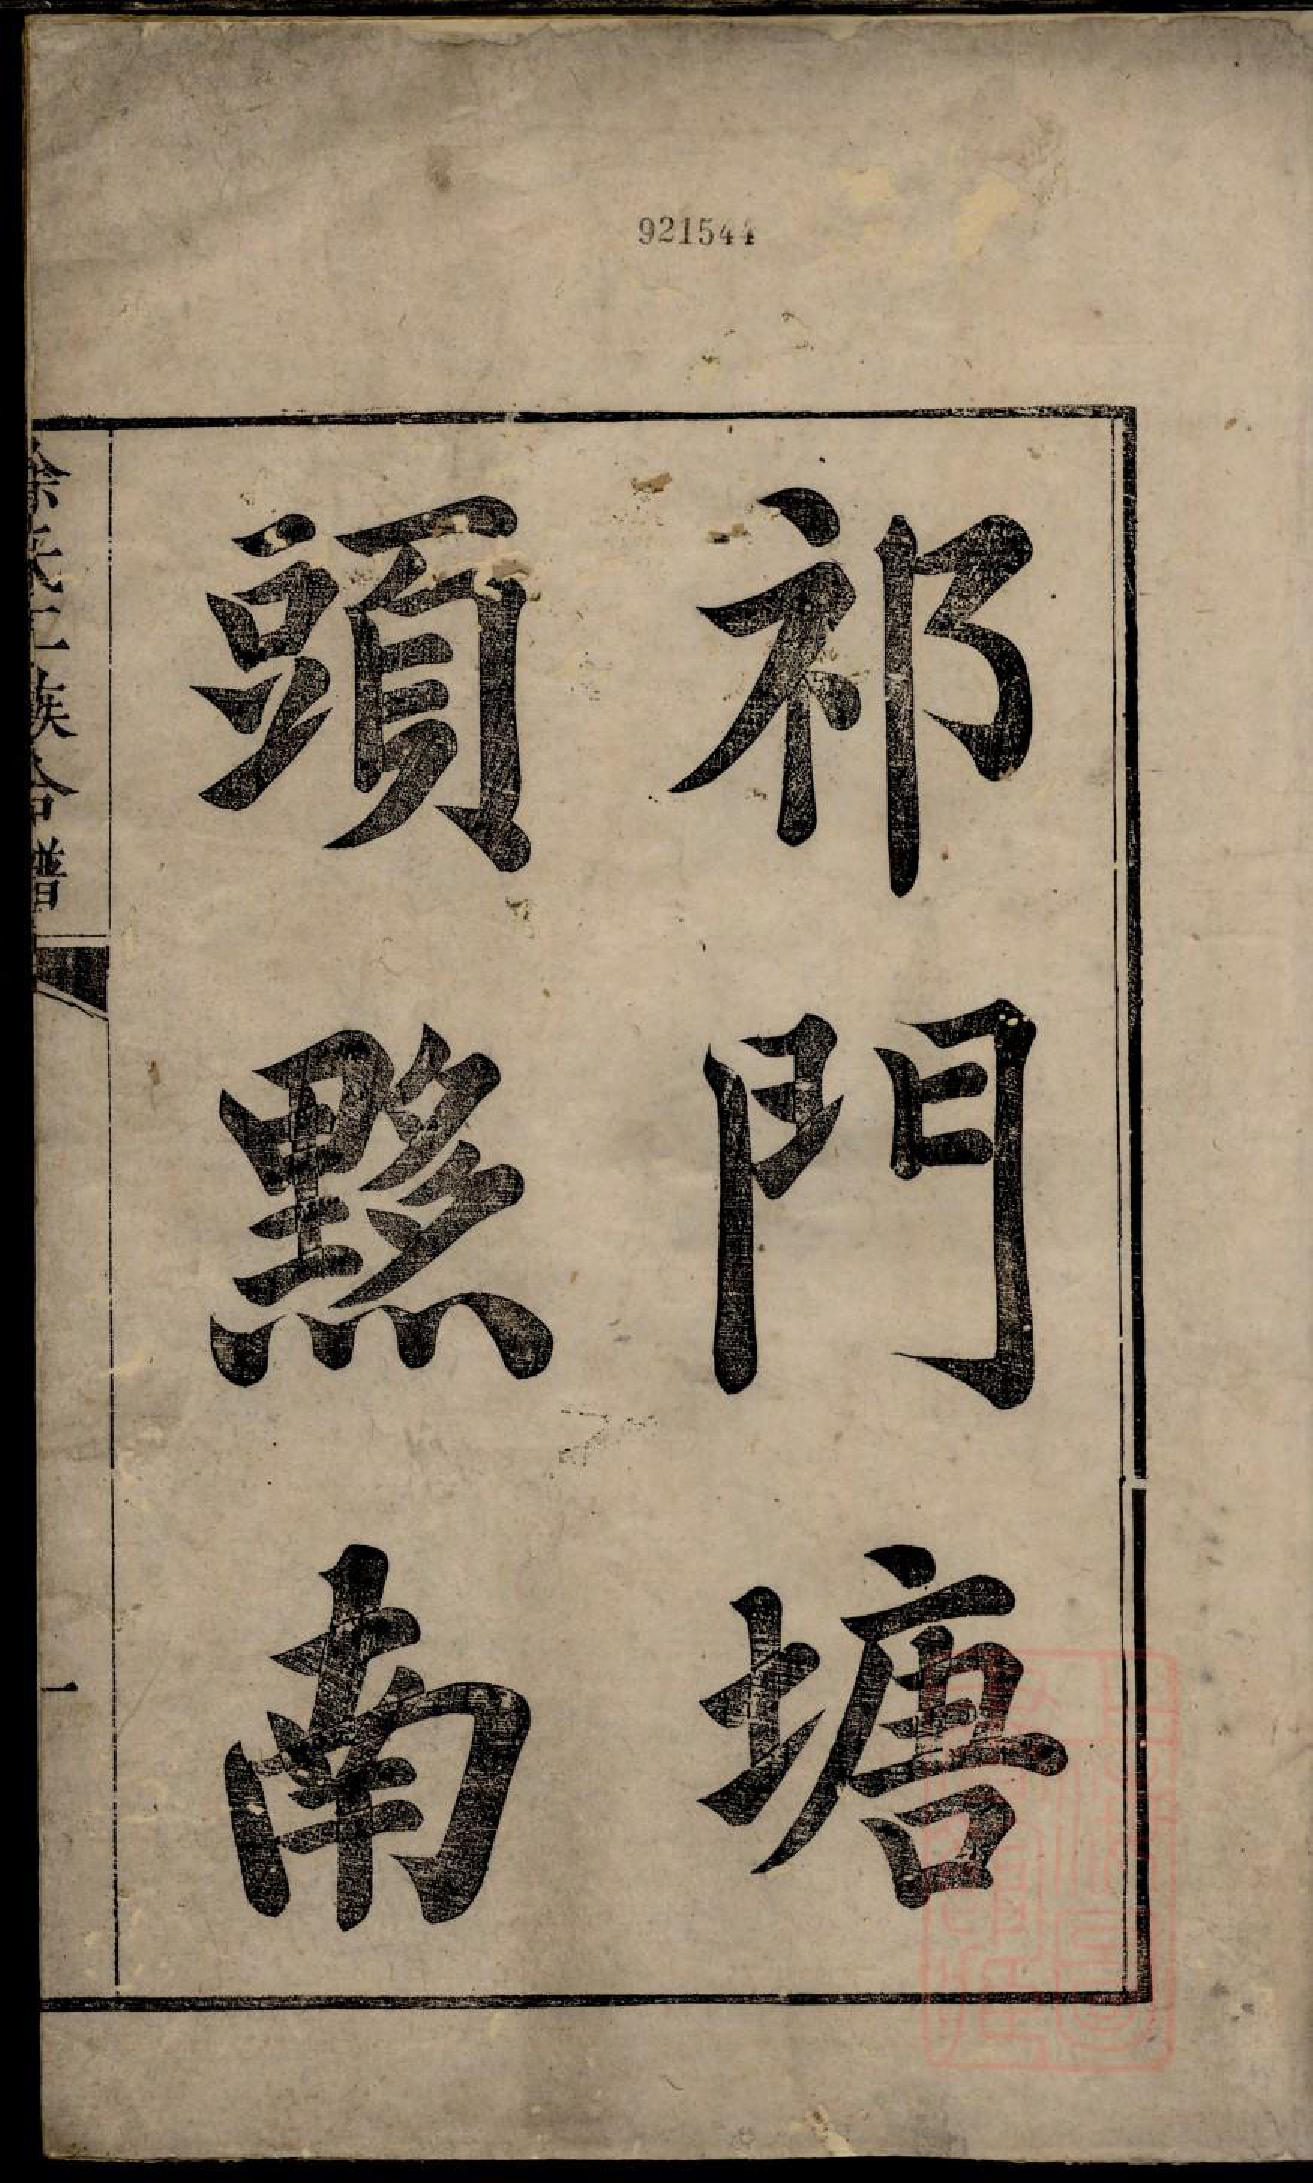 921544
祁門塘
頭黟南
徐氏二族合譜
一